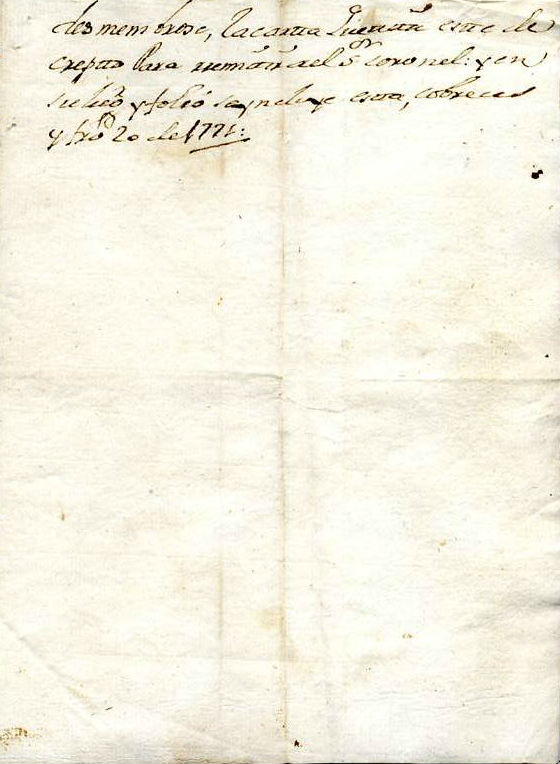 desmembrese, la carta que cita este de
crepto Para remitir a el Sr coronel: y en
su lugr y folio se yncluye esta, cobreces
y fro 20 de 1771: